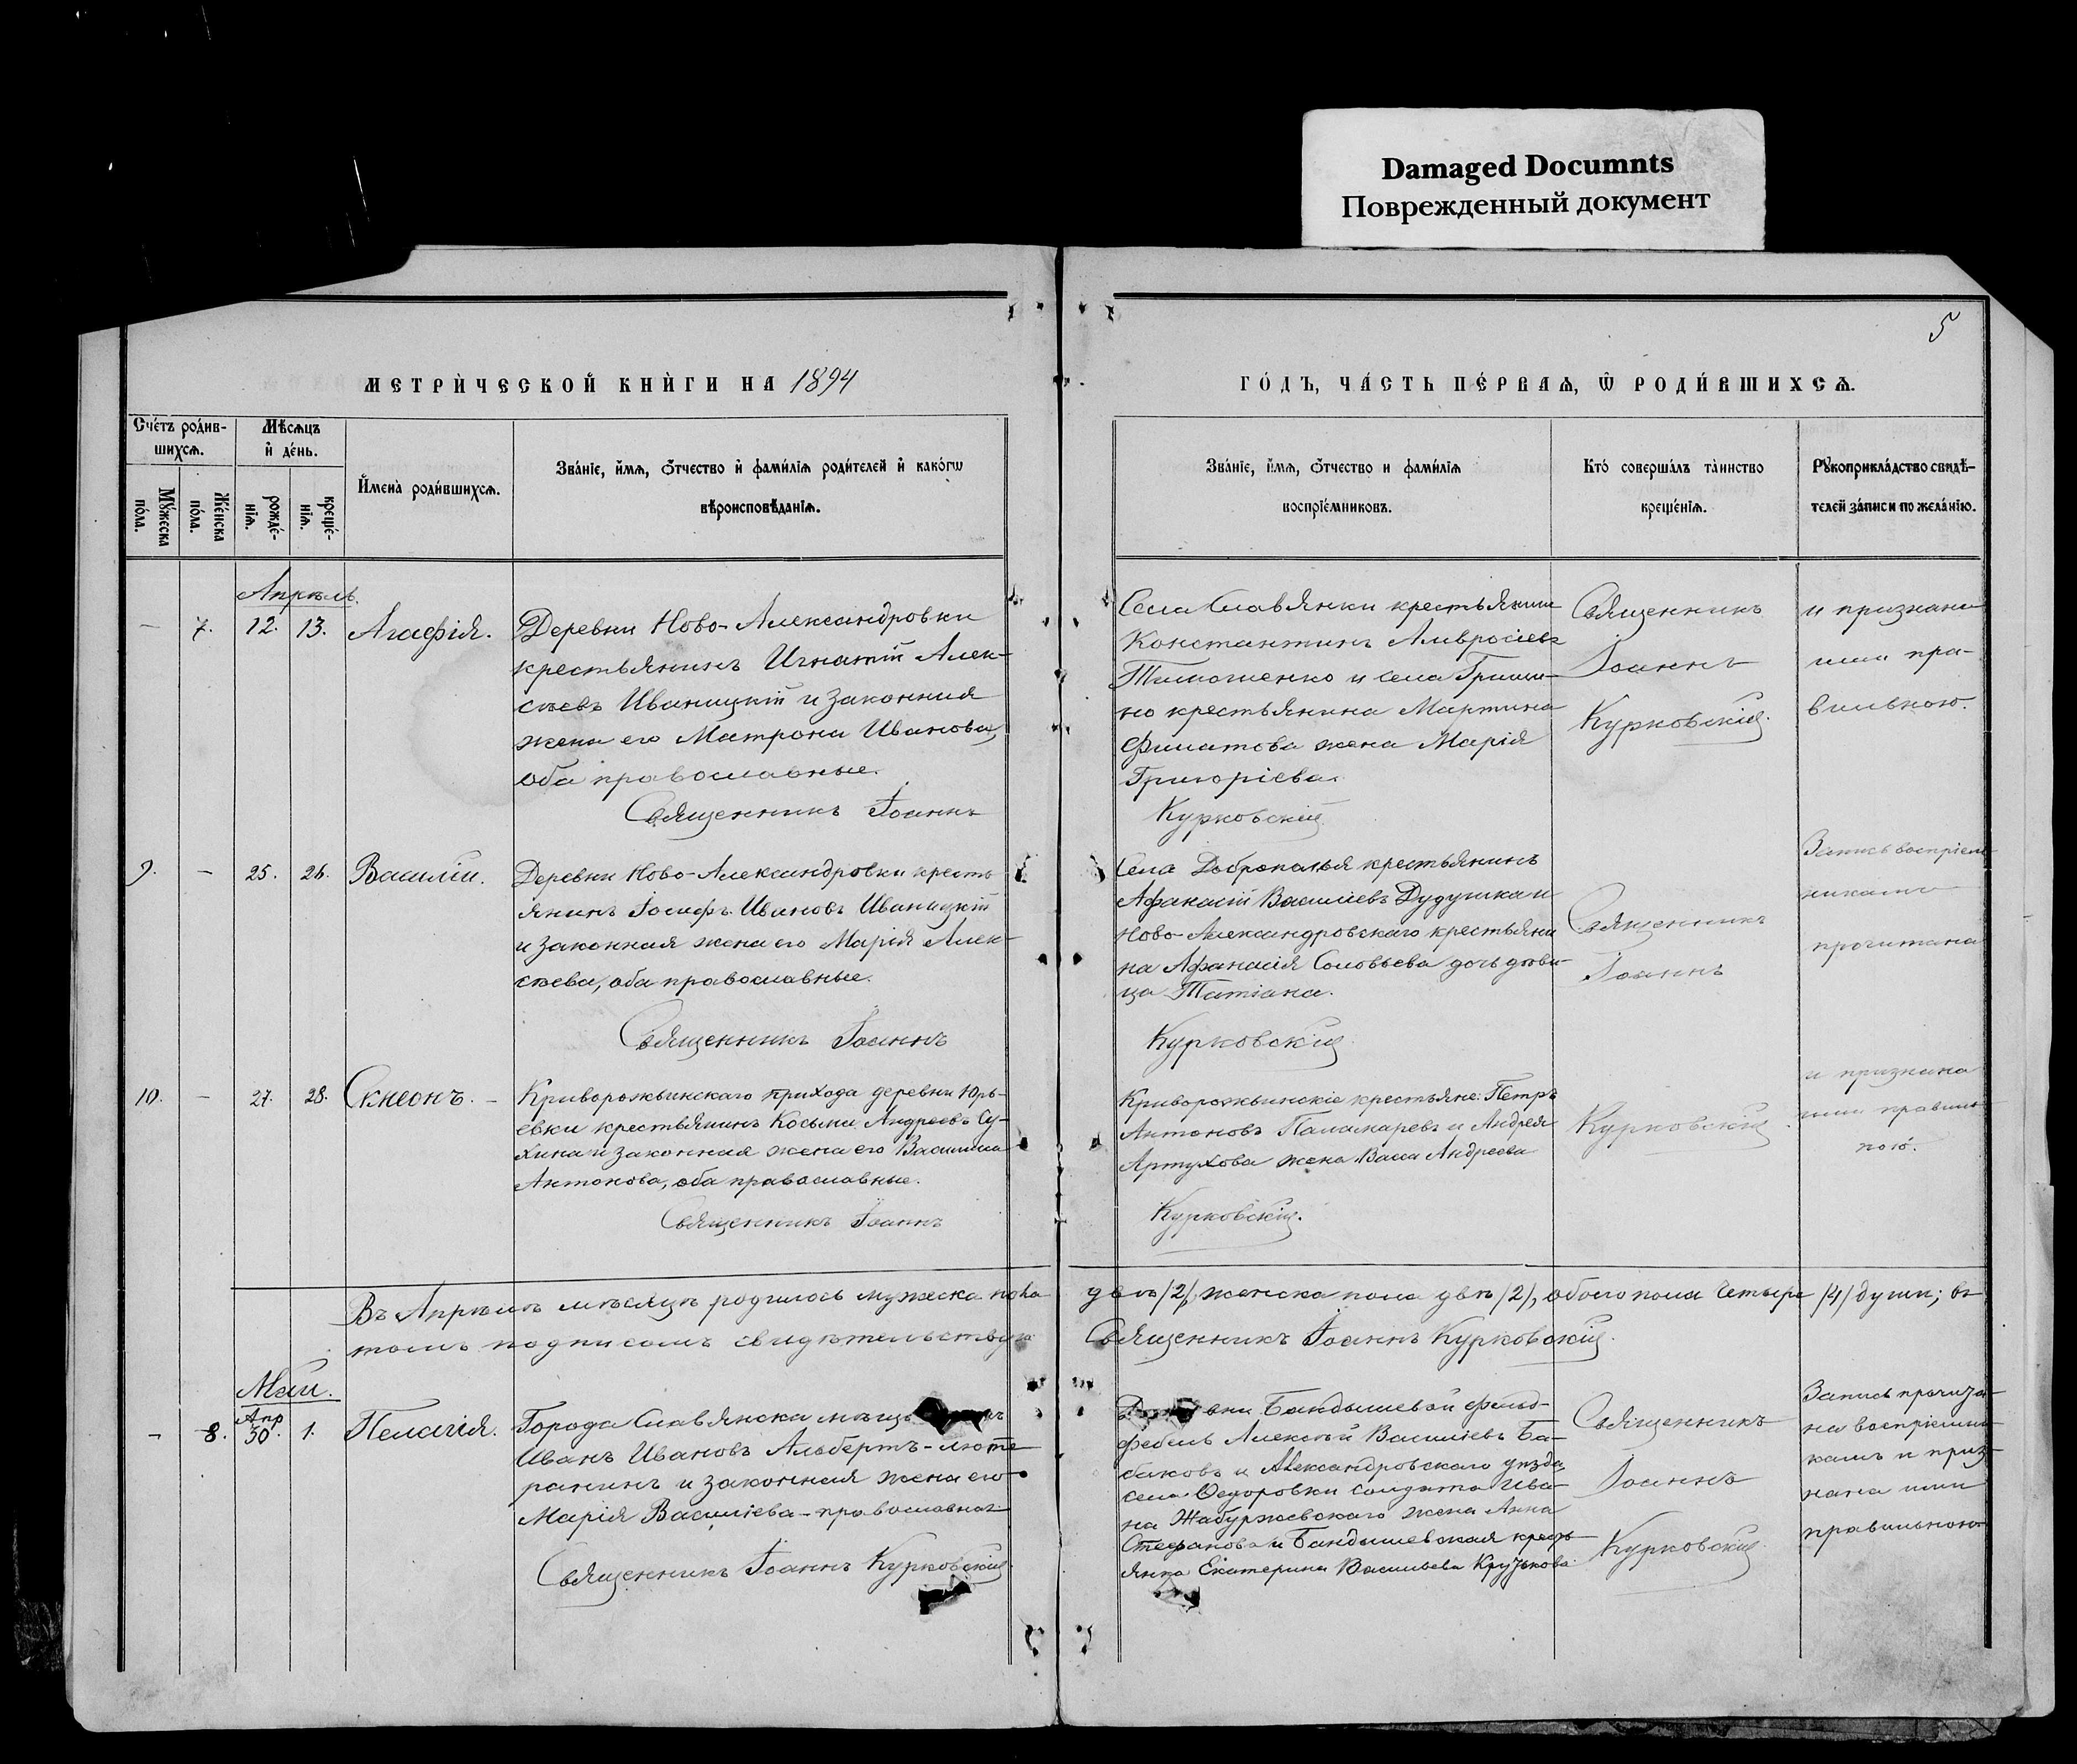 Damaged Documnts
Поврежденный документ
5
МЕТРИ́ЧЕСКОЙ КНИ́ГИ НА 1894
ГО́ДЪ, ЧА́СТЬ ПЕ́РВАѦ, Ѿ РОДИ́ВШИХСѦ.
Сче́тъ роди́в-
шихсѧ.
Мꙋ́жеска
по́ла.
Же́нска
по́ла.
Мѣ́сѧцъ
и҆ де́нь.
рожде́-
нїѧ.
креще́-
нїѧ.
И҆мена̀ роди́вшихсѧ.
Зва́нїе, и҆́мѧ, ѻ҆́тчество и҆ фами́лїѧ роди́телей и҆ како́гѡ
вѣроисповѣ́данїѧ.
Зва́нїе, и҆́мѧ, ѻ҆́тчество и фами́лїѧ
воспрїе́мниковъ.
Кто̀ соверша́лъ та́инство
креще́нїѧ.
Рꙋкоприкла́дство свидѣ́-
телей за́писи по жела́нїю.
Апрѣль.
— 7. 12. 13. Агафія.
Деревни Ново-Александровки
крестьянинъ Игнатій Алек-
сѣевъ Иваницкій и законная
жена его Матрона Иванова,
оба православные.
Священникъ Іоаннъ
Села Славянки крестьянин
Константинъ Амвросіевъ
Тимошенко и села Гриши-
но крестьянина Мартина
Филатова жена Марія
Григоріева.
Курковскій
Священникъ
Іоаннъ
Курковскій.
и признана
ими пра-
вильною.
9. — 25. 26. Василій.
Деревни Ново-Александровки кресть
янинъ Іосифъ Ивановъ Иваницкій
и законная жена его Марія Алек-
сѣева, оба православные.
Священникъ Іоаннъ
Села Доброполья крестьянинъ
Афанасій Василіевъ Дудушка и
Ново-Александровскаго крестьяни
на Афанасія Соловьева дочь дѣви-
ца Татіана.
Курковскій
Священникъ
Іоаннъ
Запись воспріем-
никами
прочитана
10. — 27. 28. Симеонъ. —
Криворожьинскаго прихода деревни Юрь-
евки крестьянинъ Косьма Андреевъ Су-
хина и законная жена его Василиса
Антонова, оба православные.
Священникъ Іоаннъ
Криворожьинскіе крестьяне: Петръ
Антоновъ Паламаревъ и Андрея
Артухова жена Васса Андреева
Курковскій.
Курковскій
и признана
ими правиль
ною.
Въ Апрѣлѣ мѣсяцѣ родилось мужеска пола два /2/, женска пола двѣ /2/, обоего пола четыре /4/ души; въ
томъ подписомъ свидѣтельствую Священникъ Іоаннъ Курковскій.
Май.
— 8. Апр 30. 1. Пелагія.
Города Славянска мѣщ
Иванъ Ивановъ Альбертъ-люте
ранинъ и законная жена его
Марія Василіева-православная
Священникъ Іоаннъ Курковскій.
вни Бандышевой фельд-
фебель Алексѣй Василіевъ Ба-
баковъ и Александровскаго уѣзда
села Ѳедоровки солдата Ива-
на Жабуржевскаго жена Анна
Стефанова и Бандышевская кресть-
янка Екатерина Васильева Крузькова.
Священникъ
Іоаннъ
Курковскій.
Запись прочита-
на воспріемни-
камъ и приз-
нана ими
правильною.